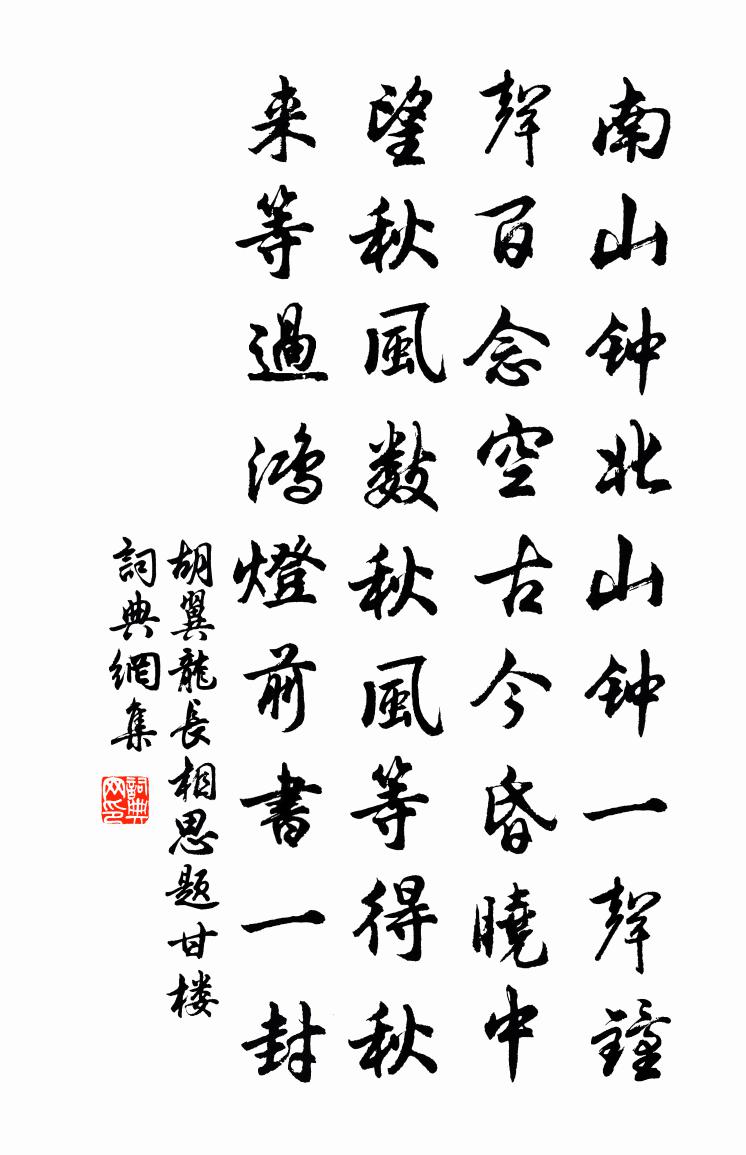 南山钟北山钟一聲鐘
聲百念空古今昏曉中
望秋風數秋風等得秋
来等過鴻燈前書一封
胡翼龍長相思題甘楼
詞典網集
詞典网印